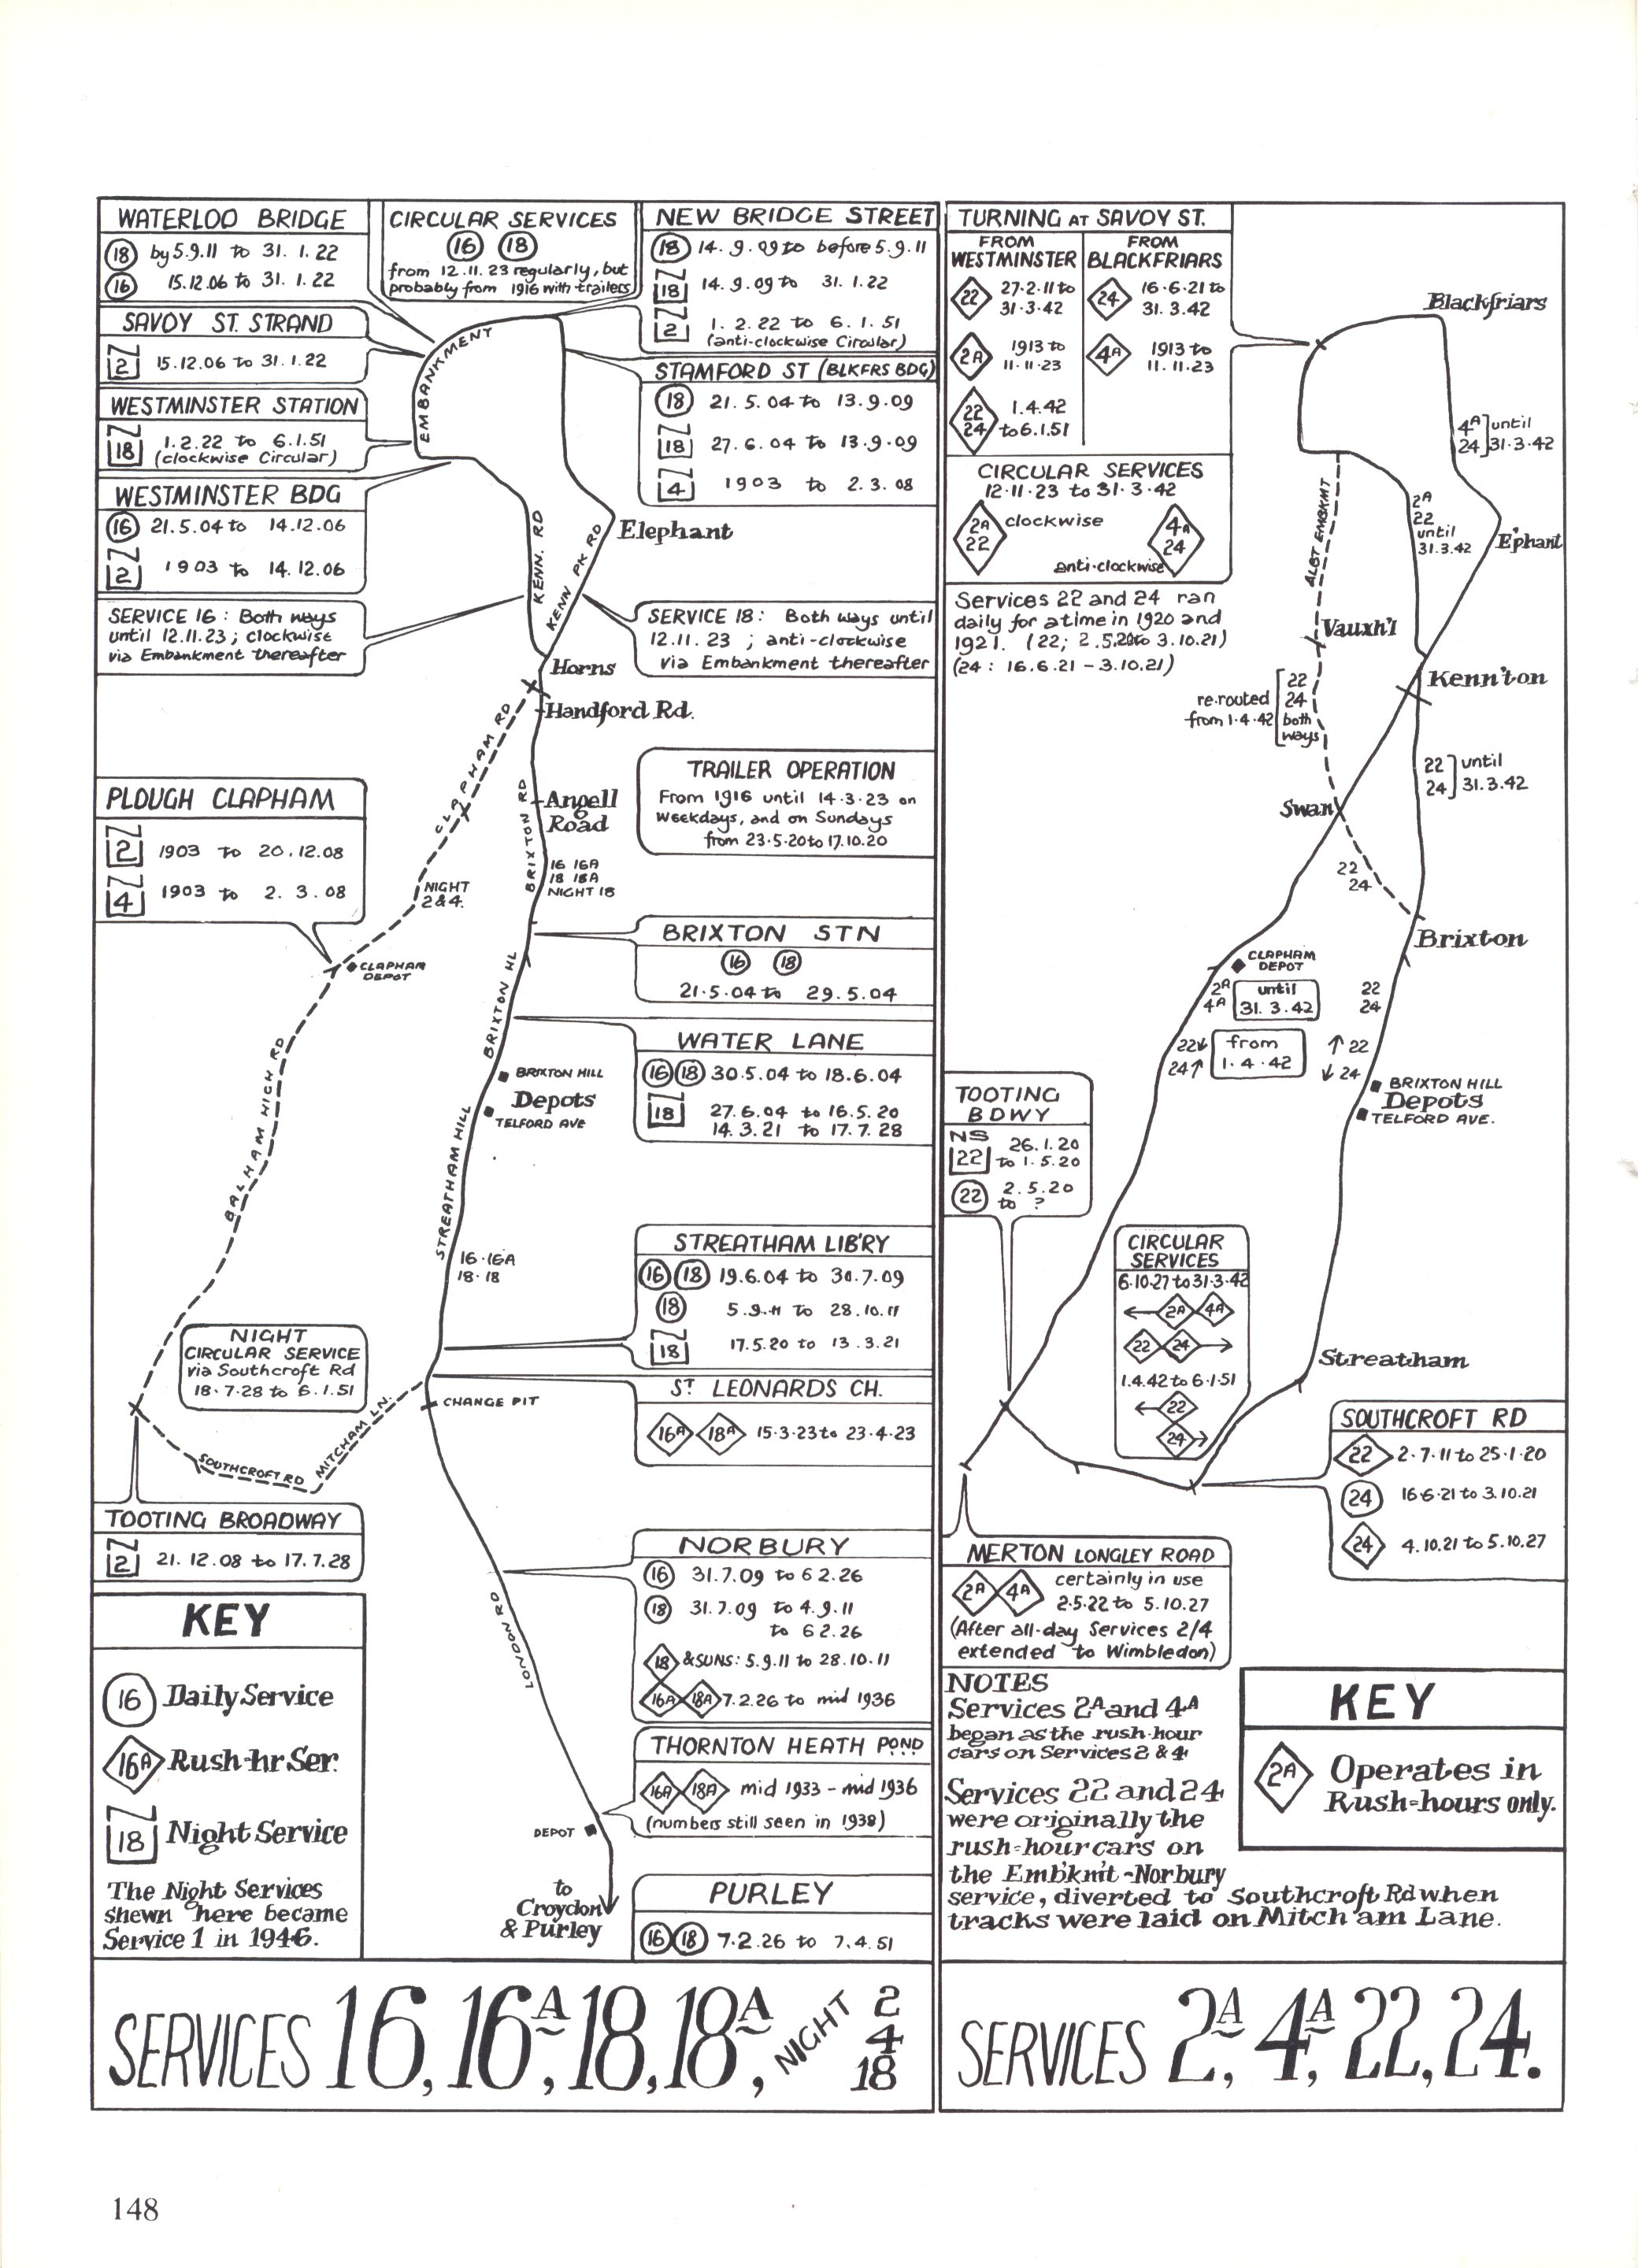 WATERLOO BRIDGE
18 by 5.9.11 to 31.1.22
16 15.12.06 to 31.1.22
SAVOY ST. STRAND
2 15.12.06 to 31.1.22
WESTMINSTER STATION
18 1.2.22 to 6.1.51
(clockwise Circular)
WESTMINSTER BDG
16 21.5.04 to 14.12.06
2 1903 to 14.12.06
SERVICE 16: Both ways
until 12.11.23; clockwise
via Embankment thereafter
CIRCULAR SERVICES
16 18
from 12.11.23 regularly, but
probably from 1916 with trailers
NEW BRIDGE STREET
18 14.9.09 to before 5.9.11
18 14.9.09 to 31.1.22
2 1.2.22 to 6.1.51
(anti-clockwise Circular)
STAMFORD ST (BLKFRS BDG)
18 21.5.04 to 13.9.09
18 27.6.04 to 13.9.09
4 1903 to 2.3.08
EMBANKMENT
KENN. RD
KENN PK RD
Elephant
SERVICE 18: Both ways until
12.11.23; anti-clockwise
via Embankment thereafter
Horns
Handford Rd.
CLAPHAM RD
BRIXTON RD
Angell
Road
TRAILER OPERATION
From 1916 until 14.3.23 on
Weekdays, and on Sundays
from 23.5.20 to 17.10.20
PLOUGH CLAPHAM
2 1903 to 20.12.08
4 1903 to 2.3.08
16 16A
18 18A
NIGHT 18
NIGHT
2 & 4.
CLAPHAM
DEPOT
BRIXTON STN
16 18
21.5.04 to 29.5.04
BRIXTON HL
WATER LANE
16 18 30.5.04 to 18.6.04
18 27.6.04 to 16.5.20
14.3.21 to 17.7.28
BALHAM HIGH RD
BRIXTON HILL
Depots
TELFORD AVE
STREATHAM HILL
16.16A
18.18
STREATHAM LIB'RY
16 18 19.6.04 to 30.7.09
18 5.9.11 to 28.10.11
18 17.5.20 to 13.3.21
NIGHT
CIRCULAR SERVICE
via Southcroft Rd
18.7.28 to 6.1.51
ST LEONARDS CH.
16A 18A 15.3.23 to 23.4.23
CHANGE PIT
MITCHAM LN.
SOUTHCROFT RD
TOOTING BROADWAY
2 21.12.08 to 17.7.28
LONDON RD
NORBURY
16 31.7.09 to 6 2.26
18 31.7.09 to 4.9.11
to 6 2.26
18 & SUNS: 5.9.11 to 28.10.11
16A 18A 7.2.26 to mid 1936
THORNTON HEATH POND
16A 18A mid 1933 - mid 1936
(numbers still seen in 1938)
DEPOT
to
Croydon
& Purley
PURLEY
16 18 7.2.26 to 7.4.51
KEY
16 Daily Service
16A Rush-hr Ser.
18 Night Service
The Night Services
shewn here became
Service 1 in 1946.
SERVICES 16, 16A, 18, 18A, NIGHT 2 4 18
TURNING AT SAVOY ST.
FROM WESTMINSTER
22 27.2.11 to
31.3.42
2A 1913 to
11.11.23
22 24 1.4.42
to 6.1.51
FROM BLACKFRIARS
24 16.6.21 to
31.3.42
4A 1913 to
11.11.23
CIRCULAR SERVICES
12.11.23 to 31.3.42
2A 22 clockwise
4A 24
anti-clockwise
Services 22 and 24 ran
daily for a time in 1920 and
1921. (22; 2.5.20 to 3.10.21)
(24: 16.6.21 - 3.10.21)
Blackfriars
4A 24 until
31.3.42
ALBT EMBKMT
2A
22
until
31.3.42
E'phant
Vauxh'l
Kenn'ton
re-routed
from 1.4.42
22
24
both
ways
22 24 until
31.3.42
Swan
22
24
Brixton
CLAPHAM
DEPOT
2A
4A
until
31.3.42
22
24
22↓
24↑
from
1.4.42
↑22
↓24
BRIXTON HILL
Depots
TELFORD AVE.
TOOTING
BDWY
NS
22 26.1.20
to 1.5.20
22 2.5.20
to ?
CIRCULAR
SERVICES
6.10.27 to 31.3.42
← 2A 4A
22 24 →
1.4.42 to 6.1.51
← 22
24 →
Streatham
SOUTHCROFT RD
22 2.7.11 to 25.1.20
24 16.6.21 to 3.10.21
24 4.10.21 to 5.10.27
MERTON LONGLEY ROAD
2A 4A certainly in use
2.5.22 to 5.10.27
(After all-day Services 2/4
extended to Wimbledon)
NOTES
Services 2A and 4A
began as the rush-hour
cars on Services 2 & 4
Services 22 and 24
were originally the
rush-hour cars on
the Emb'km't-Norbury
service, diverted to Southcroft Rd when
tracks were laid on Mitch'am Lane.
KEY
2A Operates in
Rush-hours only.
SERVICES 2A, 4A, 22, 24.
148